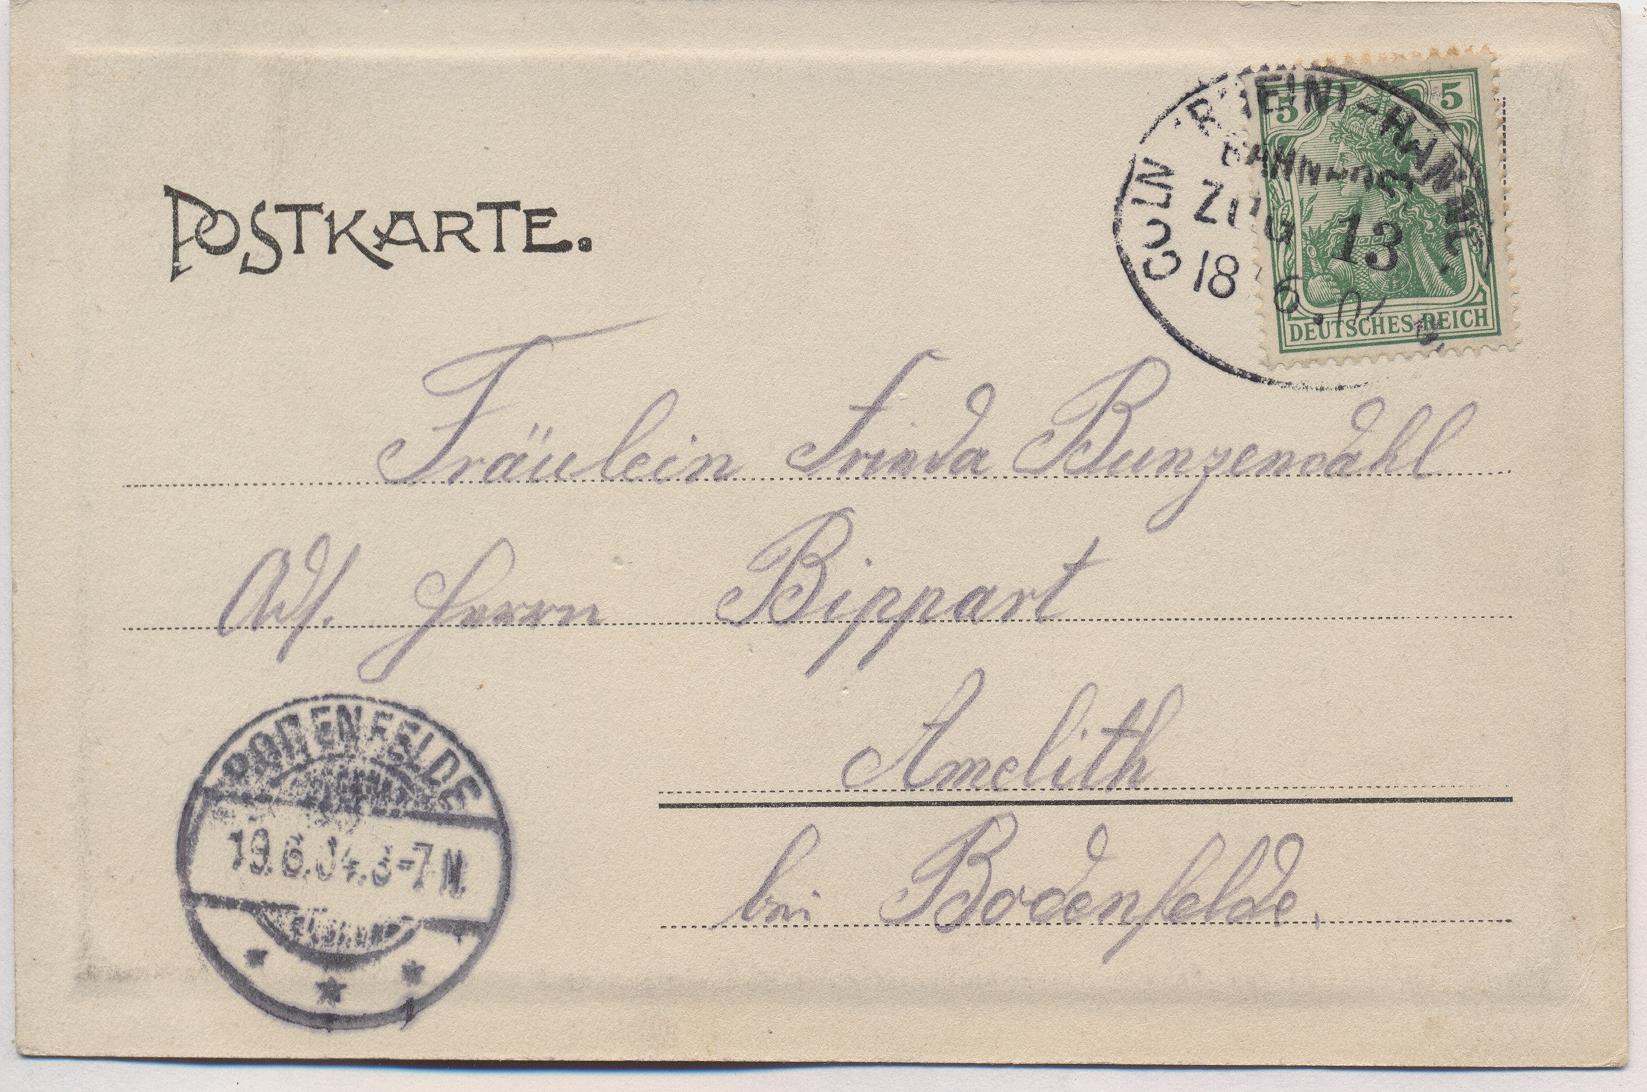 POSTKARTE.
CÖLN (RHEIN)-HANNOV.
BAHNPOST
ZUG 13
18 6.04
5 5
DEUTSCHES REICH
Fräulein Frieda Bunzendahl
Adr. Herrn Bippart
Amelith
bei Bodenfelde.
BODENFELDE
19.6.04.6-7N.